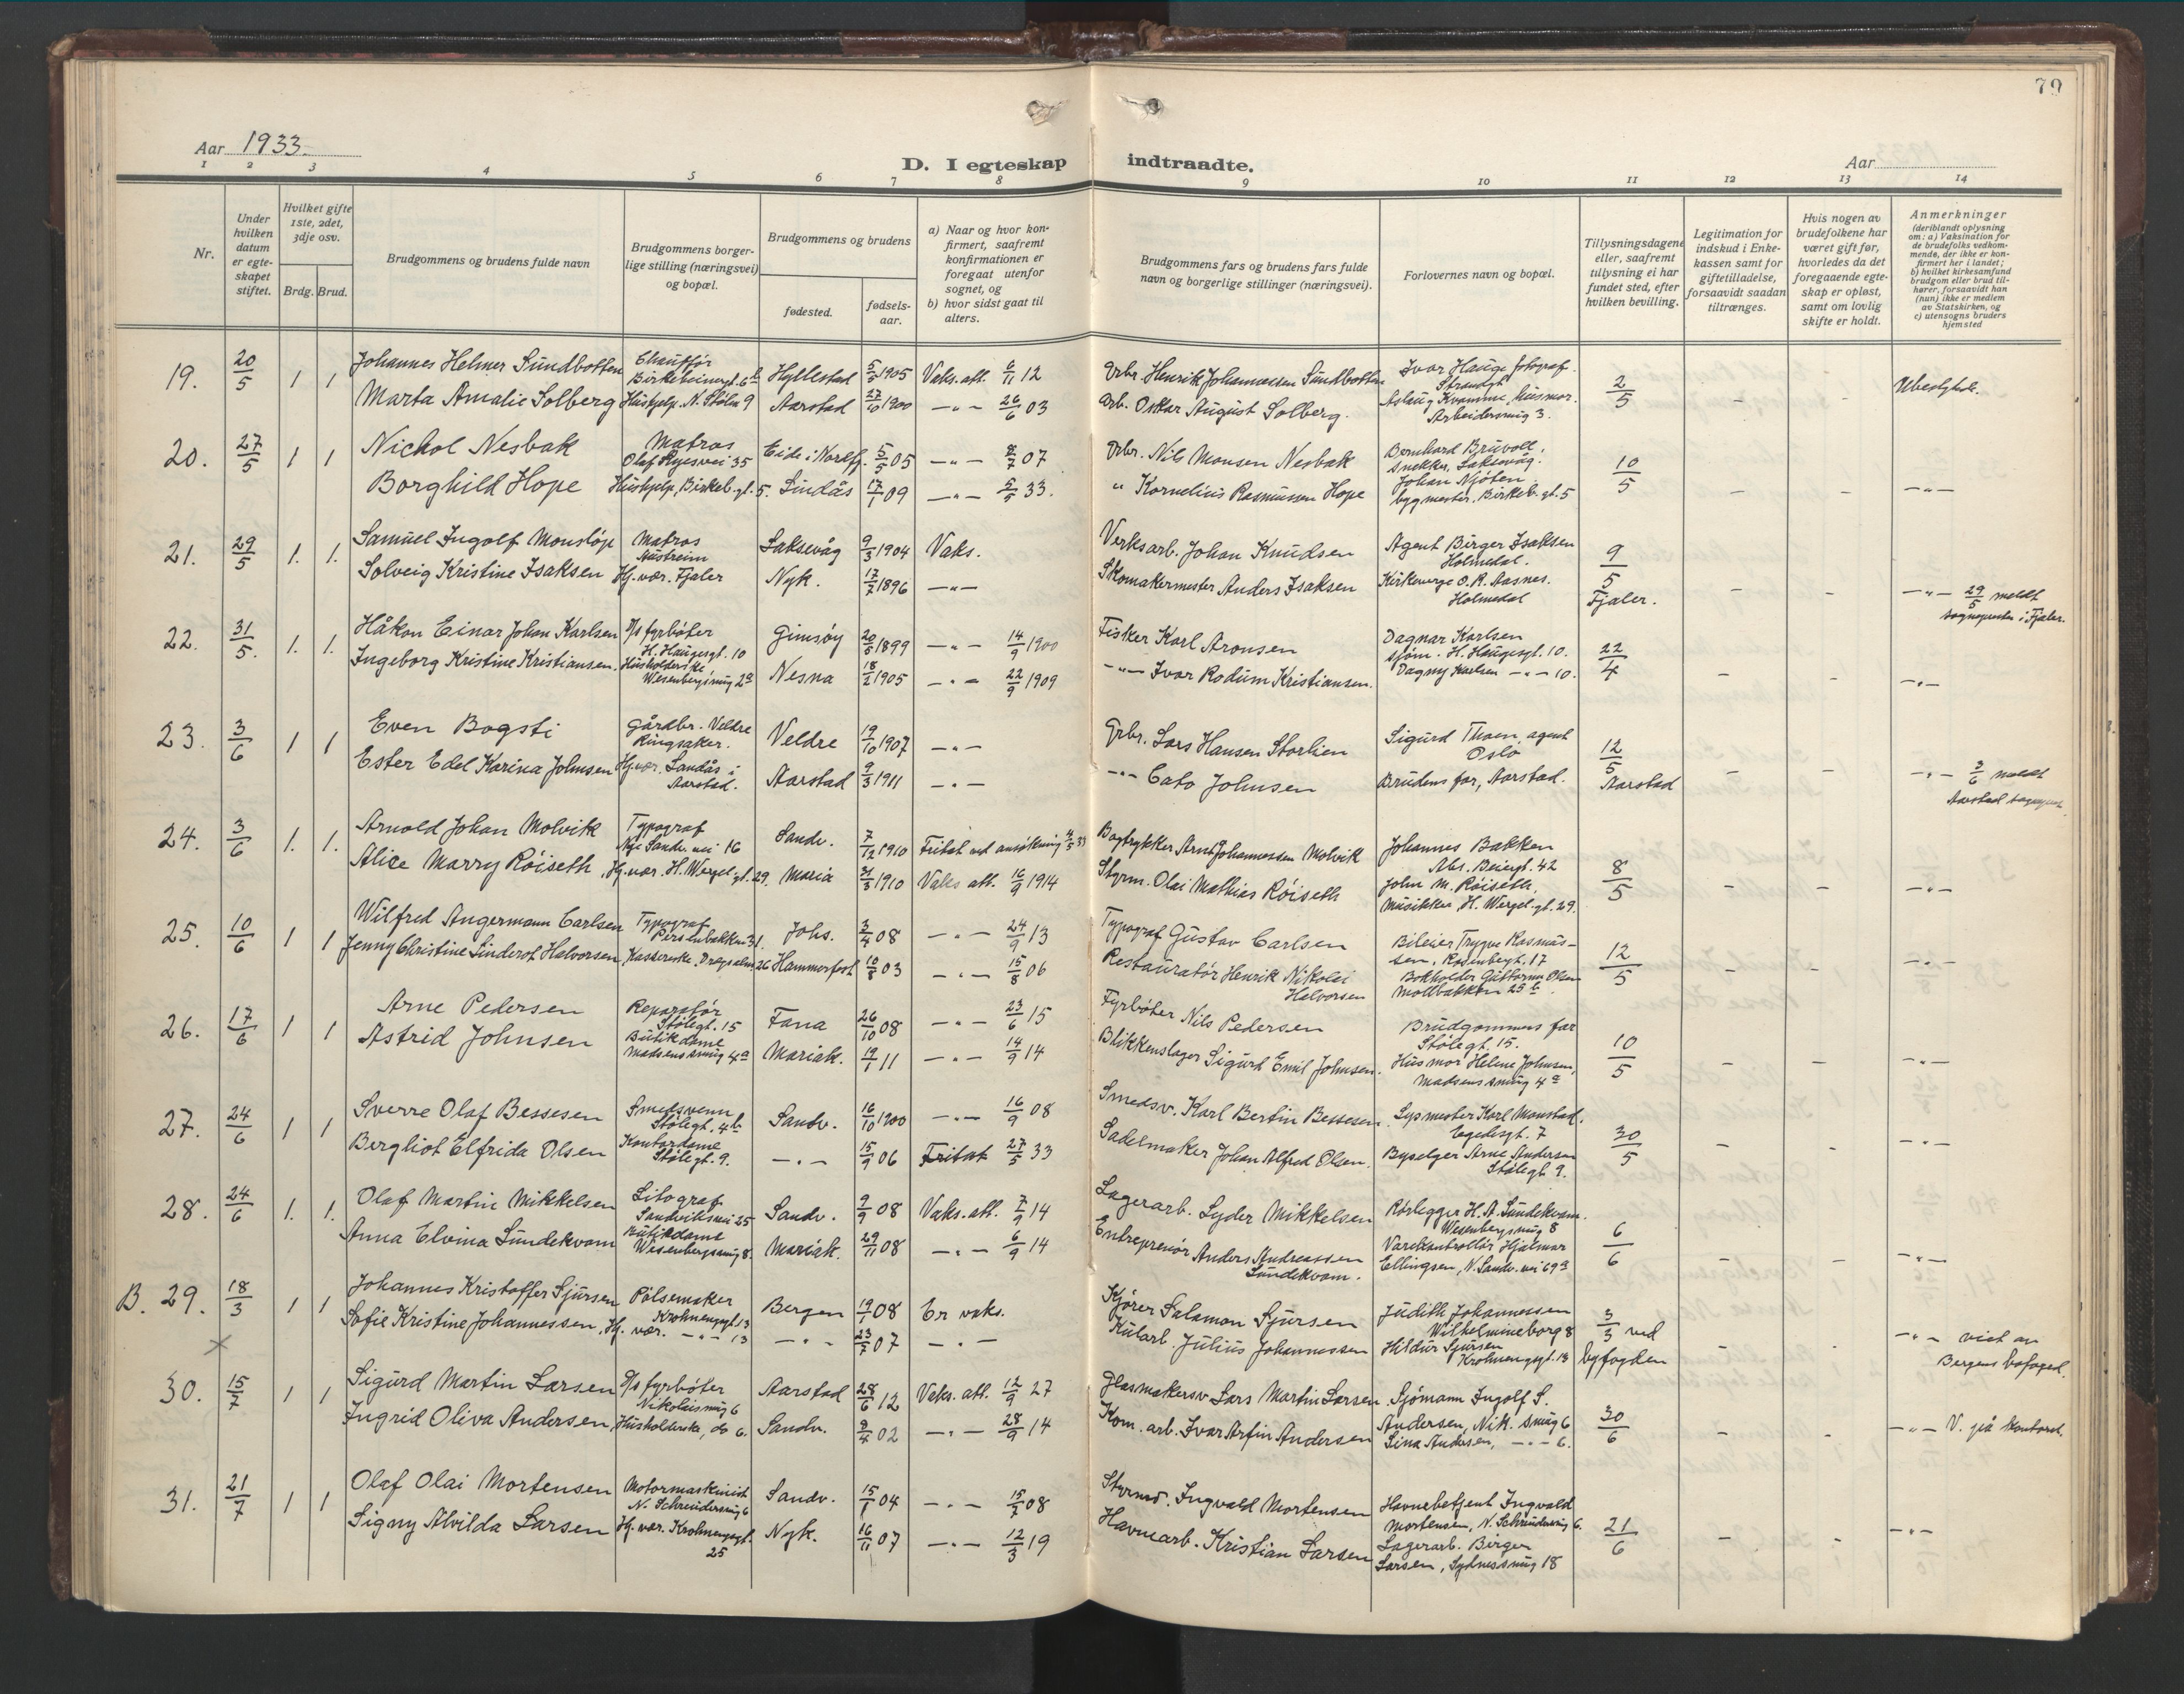 79
Aar 1933.
D. I egteskap indtraadte.
Aar
1 2 3 4 5 6 7 8 9 10 11 12 13 14
Nr.
Under hvilken datum er egteskapet stiftet.
Hvilket gifte 1ste, 2det, 3dje osv.
Brdg. Brud.
Brudgommens og brudens fulde navn
Brudgommens borgerlige stilling (næringsvei) og bopæl.
Brudgommens og brudens
fødested.
fødselsaar.
a) Naar og hvor konfirmert, saafremt konfirmationen er foregaat utenfor sognet, og
b) hvor sidst gaat til alters.
Brudgommens fars og brudens fars fulde navn og borgerlige stillinger (næringsvei).
Forlovernes navn og bopæl.
Tillysningsdagene eller, saafremt tillysning ei har fundet sted, efter hvilken bevilling.
Legitimation for indskud i Enkekassen samt for giftetilladelse, forsaavidt saadan tiltrænges.
Hvis nogen av brudefolkene har været gift før, hvorledes da det foregaaende egteskap er opløst, samt om lovlig skifte er holdt.
Anmerkninger
(deriblandt oplysning om: a) Vaksination for de brudefolks vedkommende, der ikke er konfirmert her i landet; b) hvilket kirkesamfund brudgom eller brud tilhører, forsaavidt han (hun) ikke er medlem av Statskirken, og c) utensogns bruders hjemsted
19. 20/5 1 1 Johannes Helmer Sundbotten Chauffør Birkebeinergt. 6b Hyllestad 5/5 1905 Vaks. att. 6/11 12 Grbr. Henrik Johannessen Sundbotten Ivar Hauge fotograf. Strandgt 2/5 - - Ubeslektet.
Marta Amalie Solberg Hushjelp. N. Stølen 9 Aarstad 27/10 1900 -"- 26/6 03 Arb. Oskar August Solberg. Aslaug Kvamme, husmor. Arbeidersmug 3.
20. 27/5 1 1 Nickol Nesbak Matros Olaf Ryesvei 35 Eide i Nordfj. 5/5 05 -"- 2/7 07 Grbr. Nils Monsen Nesbak Bernhard Bruvoll, snekker. Laksevåg. 10/5 - - -"-
Borghild Hope Hushjelp, Birkeb.gt. 5. Lindås 17/1 09 -"- 5/5 33. " Kornelius Rasmussen Hope Johan Njøten bygmester, Birkeb. gt. 5
21. 29/5 1. 1. Samuel Ingolf Monsløp Matros Austreim Laksevåg 9/3 1904 Vaks. Verksarb. Johan Knudsen Agent Birger Isaksen Holmedal. 9/5 Fjaler. - - -"- 29/5 meldt sognepresten i Fjaler.
Solveig Kristine Isaksen Hj. vær. Fjaler Nyk. 17/7 1896 -"- Skomakermester Anders Isaksen Kirkeverge O. R. Aasnes. Holmedal
22. 31/5. 1. 1. Håkon Einar Johan Karlsen D/s fyrbøter H. Haugesgt. 10 Gimsøy 20/5 1899 -"- 14/9 1900 Fisker Karl Aronsen Dagnar Karlsen sjøm. H. Haugesgt. 10. 22/4 - - -"-
Ingeborg Kristine Kristiansen. Husholderske Wesenbergsmug 2a Nesna 18/2 1905 -"- 22/9 1909 -"- Ivar Rodum Kristiansen. Dagny Karlsen -"- 10.
23. 3/6 1 1 Even Bogsti Gårdbr. Veldre Ringsaker. Veldre 19/10 1907 -"- Grbr. Lars Hansen Storlien Sigurd Thoen, agent Oslo 12/5 Aarstad - - -"- 3/6 meldt Aarstad sogneprest
Ester Edel Karina Johnsen Hj.vær. Landås i Aarstad. Aarstad 9/3 1911 -"- -"- Cato Johnsen Brudens far, Aarstad.
24. 3/6 1. 1. Arnold Johan Molvik Typograf Nye Sandv. vei 16 Sandv. 7/12 1910 Fritat ved ansøkning 4/5 33 Bogtrykker Arnt Johannessen Molvik Johannes Bakken Abs. Beiergt. 42 8/5 - - -"-
Alice Marry Røiseth, Hj. vær. H. Wergel. gt. 29. Maria 31/3 1910 Vaks att. 16/9 1914 Styrm. Olai Mathias Røiseth John M. Røiseth, Musikker, H. Wergel. gt. 29.
25. 10/6 1 1 Wilfred Angermann Carlsen Typograf Persenbakken 31. Johs. 3/4 08 -"- 24/9 13 Typograf Gustav Carlsen Bileier Trygve Rasmussen, Rosenbergt. 17 12/5 - - -"-
Jenny Christine Linderot Halvorsen, Kassererske, Dregsalm. 26 Hammerfest 10/8 03 -"- 15/8 06 Restauratør Henrik Nikolai Halvorsen Bokholder Guttorm Olsen Møllbakken 23b.
26. 17/6 1 1 Arne Pedersen Reparatør Stølegt. 15 Fana 26/10 08 -"- 23/6 15 Fyrbøter Nils Pedersen Brudgommens far Stølegt. 15. 10/5 - - -"-
Astrid Johnsen Butikdame Madsens smug 4a Mariak. 19/1 11 -"- 14/9 14 Blikkenslager Sigurd Emil Johnsen. Husmor Helene Johnsen, Madsens smug 4a
27. 24/6 1 1 Sverre Olaf Bessesen Smedsvenn Stølegt. 4b Sandv. 16/10 1900 -"- 16/9 08 Smedsv. Karl Bertin Bessesen. Lysmester Karl Monstad. Egedesgt. 7 30/5 - - -"-
Bergliot Elfrida Olsen Kontordame Stølegt. 9. -"- 15/9 06 Fritat 27/5 33 Sadelmaker Johan Alfred Olsen. Byselger Arne Andersen Stølegt 9.
28. 24/6 1. 1. Olaf Martin Mikkelsen Litograf Sandviksvei 25 Sandv. 9/9 08 Vaks. att. 7/9 14 Lagerarb. Lyder Mikkelsen Rørlegger H. A. Sundekvam. Wesenbergsmug 8 6/6 - - -"-
Anna Elvina Sundekvam Butikdame Wesenbergsmug 8. Mariak. 29/11 08 -"- 6/9 14 Entreprenør Anders Andreassen Sundekvam. Varekontrollør Hjalmar Ellingsen, N. Sandv. vei 69a
B. 29. 18/3 1 1 Johannes Kristoffer Sjursen Pølsemaker Krohnengsgt. 13 Bergen 19/1 08 Er vaks. Kjører Salamon Sjursen Judith Johannessen Wilhelmineborg 8 3/3 ved byfogden - - -"- viet av Bergens byfoged.
× Sofie Kristine Johannessen, Hj. vær. -"- 13 -"- 23/7 07 -"- Kularb. Julius Johannessen Hildur Sjursen Krohnengsgt. 13
30. 15/7 1 1 Sigurd Martin Larsen D/s fyrbøter Nikolaismug 6 Aarstad 28/6 12 Vaks. att. 12/9 27 Glasmakersv. Lars Martin Larsen. Sjømann Ingolf S. Andersen, Nik. smug 6 30/6 - - -"- V. på kontoret.
Ingrid Oliva Andersen, Husholderske, do 6. Sandv. 8/4 02 -"- 28/9 14 Kom. arb. Ivar Arfin Andersen Lina Andersen, -"- 6.
31. 21/7 1 1 Olaf Olai Mortensen Motormaskinist N. Schreudersmug 6 Sandv. 15/1 04 -"- 15/7 08 Styrmd. Ingvald Mortensen Havnebetjent Ingvald Mortensen, N. Schreudersmug 6. 21/6 - - -"-
Signy Alvilda Larsen Hj. vær. Krohnengsgt. 25 Nyk. 16/11 07 -"- 12/3 19 Havnearb. Kristian Larsen Lagerarb. Birger Larsen, Sydnessmug 18